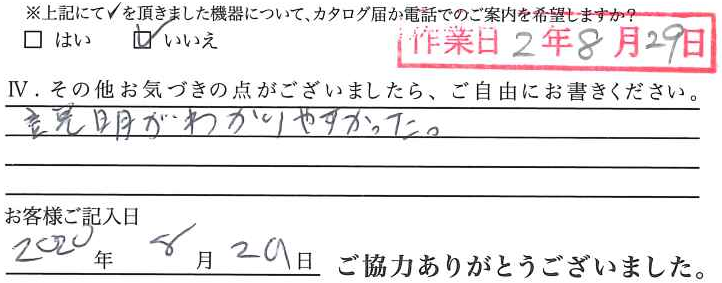 ※上記にて✓を頂きました機器について、カタログ届か電話でのご案内を希望しますか?
□ はい ☑ いいえ
作業日 2年8月29日
Ⅳ．その他お気づきの点がございましたら、ご自由にお書きください。
説明がわかりやすかった。
お客様ご記入日
2020年 8月 29日 ご協力ありがとうございました。